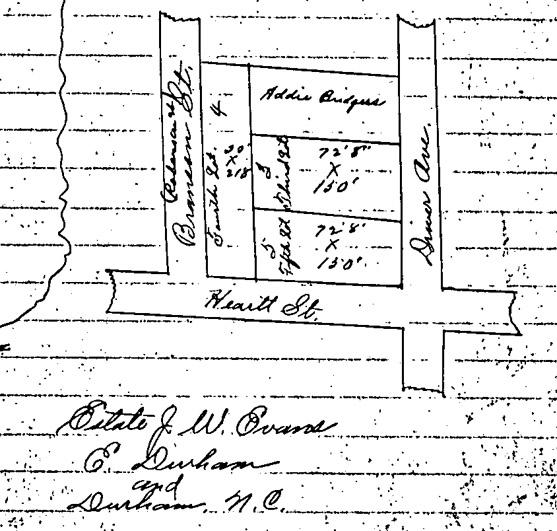 (Roberson St)
Branson St.
Fourth Lot
4
50
X
218
Addie Bridgers
3
Third Lot
72'8"
X
150'
5
Fifth Lot
72'8"
X
150'
Driver Ave.
Heartt St.
Estate J. W. Evans
E. Durham
and
Durham, N.C.